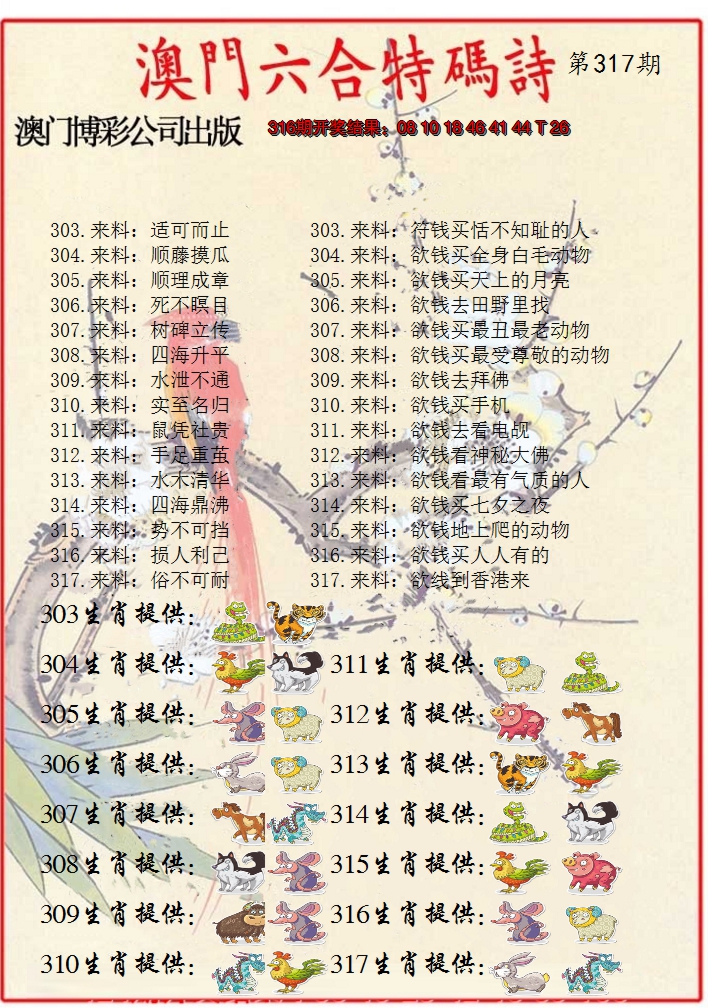 澳門六合特碼詩 第317期
澳门博彩公司出版 316期开奖结果：08 10 18 46 41 44 T 26
303.来料：适可而止 303.来料：符钱买恬不知耻的人
304.来料：顺藤摸瓜 304.来料：欲钱买全身白毛动物
305.来料：顺理成章 305.来料：欲钱买天上的月亮
306.来料：死不瞑目 306.来料：欲钱去田野里找
307.来料：树碑立传 307.来料：欲钱买最丑最老动物
308.来料：四海升平 308.来料：欲钱买最受尊敬的动物
309.来料：水泄不通 309.来料：欲钱去拜佛
310.来料：实至名归 310.来料：欲钱买手机
311.来料：鼠凭社贵 311.来料：欲钱去看电觇
312.来料：手足重茧 312.来料：欲钱看神秘大佛
313.来料：水木清华 313.来料：欲钱看最有气质的人
314.来料：四海鼎沸 314.来料：欲钱买七夕之夜
315.来料：势不可挡 315.来料：欲钱地上爬的动物
316.来料：损人利己 316.来料：欲钱买人人有的
317.来料：俗不可耐 317.来料：欲线到香港来
303生肖提供：
304生肖提供： 311生肖提供：
305生肖提供： 312生肖提供：
306生肖提供： 313生肖提供：
307生肖提供： 314生肖提供：
308生肖提供： 315生肖提供：
309生肖提供： 316生肖提供：
310生肖提供： 317生肖提供：